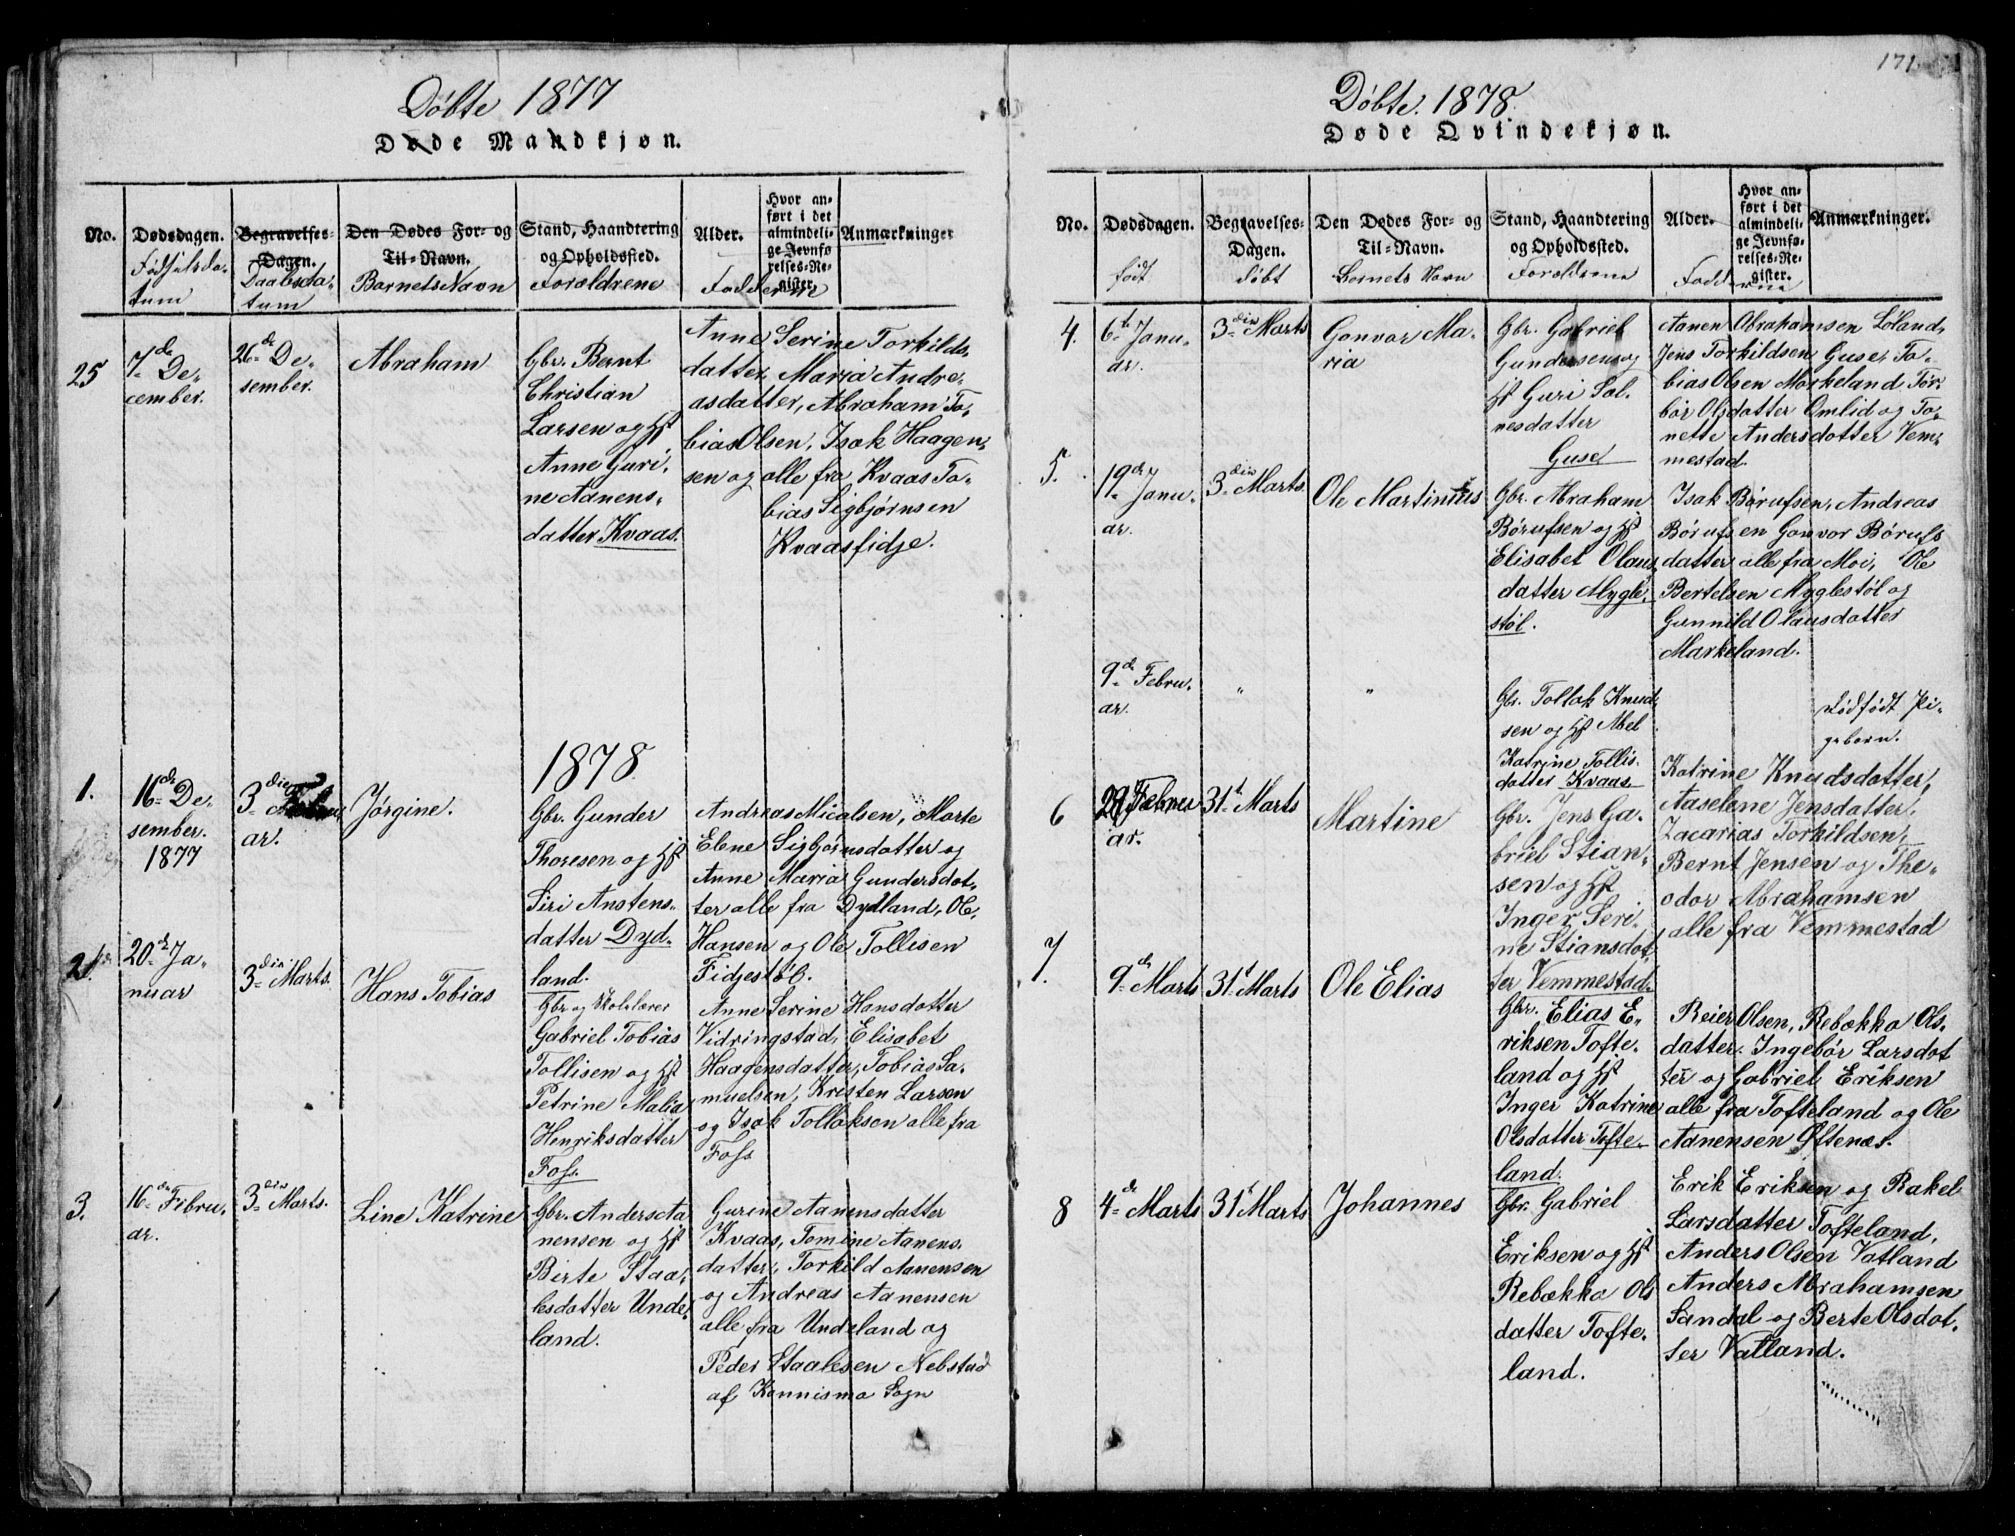 171
Døbte 1877
Døde Mandkjøn.
No.
Dødsdagen.
Fødselsda-
tum
Begravelses-
Dagen.
Daabsda-
tum
Den Dødes For- og
Til-Navn.
Barnets Navn
Stand, Haandtering
og Opholdsted.
Forældrene
Alder.
Hvor an-
ført i det
almindeli-
ge Jevnfø
relses-Re-
gister.
Fadderne
Anmærkninger
25
7de De-
cember.
26de De-
sember.
Abraham
Gbr. Bernt
Christian
Larsen og Hst
Anne Guri-
ne Aanens-
datter Kvaas.
Anne Serine Torkilds-
datter, Maria Andre-
asdatter, Abraham To-
bias Olsen, Isak Haagen-
sen og alle fra Kvaas To-
bias Sigbjørnsen
Kvaasfidje.
1878
1.
16de De-
sember.
1877
3die
ar.
Jørgine.
Gbr. Gunder
Thoresen og Hst
Siri Anstens-
datter Dyd-
land.
Andreas Micalsen, Marte
Elene Sigbjørnsdatter og
Anne Maria Gundersdat-
ter alle fra Dydland, Ole
Hansen og Ole Tollisen
Fidjestøl.
2.
20de Ja-
nuar
3die Marts.
Hans Tobias
Gbr. og Skolelærer
Gabriel Tobias
Tollisen og Hst
Petrine Malia
Henriksdatter
Foss.
Anne Serine Hansdatter
Vidringstad, Elisabet
Haagensdatter, Tobias Sa-
muelsen, Kristen Larsen
og Isak Tollaksen alle fra
Foss
3.
16de Febru-
ar.
3die Marts.
Line Katrine
Gbr. Anders Aa
nensen og Hst
Birte Staa-
lesdatter Unde-
land.
Gurine Aanensdatter
Kvaas, Tomine Aanens-
datter, Torkild Aanensen
og Andreas Aanensen
alle fra Undeland og
Peder Staalesen Nebstad
af Konnismo Sogn
Døbte. 1878.
Døde Qvindekjøn.
No.
Dødsdagen.
født
Begravelses-
Dagen.
døbt
Den Dødes For- og
Til-Navn.
Barnets Navn
Stand, Haandtering
og Opholdsted.
Foræeldrene
Alder.
Hvor an-
ført i det
almindeli-
ge Jevnfø-
relses-Re-
gister.
Fadderne
Anmærkninger.
4.
6te Janu-
ar.
3die Marts
Gonvor Ma-
ria
Gbr. Gabriel
Gundersen og
Hst Guri Sal-
nesdatter
Guse
Aanen Abrahamsen Løland,
Jens Torkildsen Guse, To-
bias Olsen Mørkeland Tor-
bør Olsdatter Omlid og To-
nette Andersdatter Vem-
mestad.
5.
19de Janu-
ar.
3die Marts.
Ole Martinius
Gbr. Abraham
Børufsen og Hst
Elisabet Olaus-
datter Mygle-
støl.
Isak Børufsen, Andreas
Børufsen Gonvor Børufs
datter alle fra Moi, Ole
Bertelsen Myglestøl og
Gunnild Olausdatter
Markeland.
9de Febru-
ar.
"
"
Gbr. Tollak Knud-
sen og Hst Abel
Katrine Tollis-
datter Kvaas.
Dødfødt Pi-
gebarn.
6
Februa
ar.
31t Marts
Martine
Gbr. Jens Ga-
briel Stian-
sen og Hst
Inger Seri-
ne Stiansdat-
ter Vemmestad.
Katrine Knudsdatter,
Aaselene Jensdatter,
Zacarias Torkildsen,
Bernt Jensen og The-
odor Abrahamsen
alle fra Vemmestad
7
9de Marts
31t Marts
Ole Elias
Gbr. Elias E-
riksen Tofte-
land og Hst
Inger Katrine
Olsdatter Tofte-
land.
Reier Olsen, Rebækka Ols-
datter. Ingebør Larsdat
ter og Gabriel Eriksen
alle fra Tofteland og Ole
Aanensen Øftenæs.
8
4de Marts
31t Marts
Johannes
Gbr. Gabriel
Eriksen og Hst
Rebækka Ols
datter Tofte-
land.
Erik Eriksen og Rakel
Larsdatter Tofteland,
Anders Olsen Vatland
Anders Abrahamsen
Sandal og Berte Olsdat-
ter Vatland.